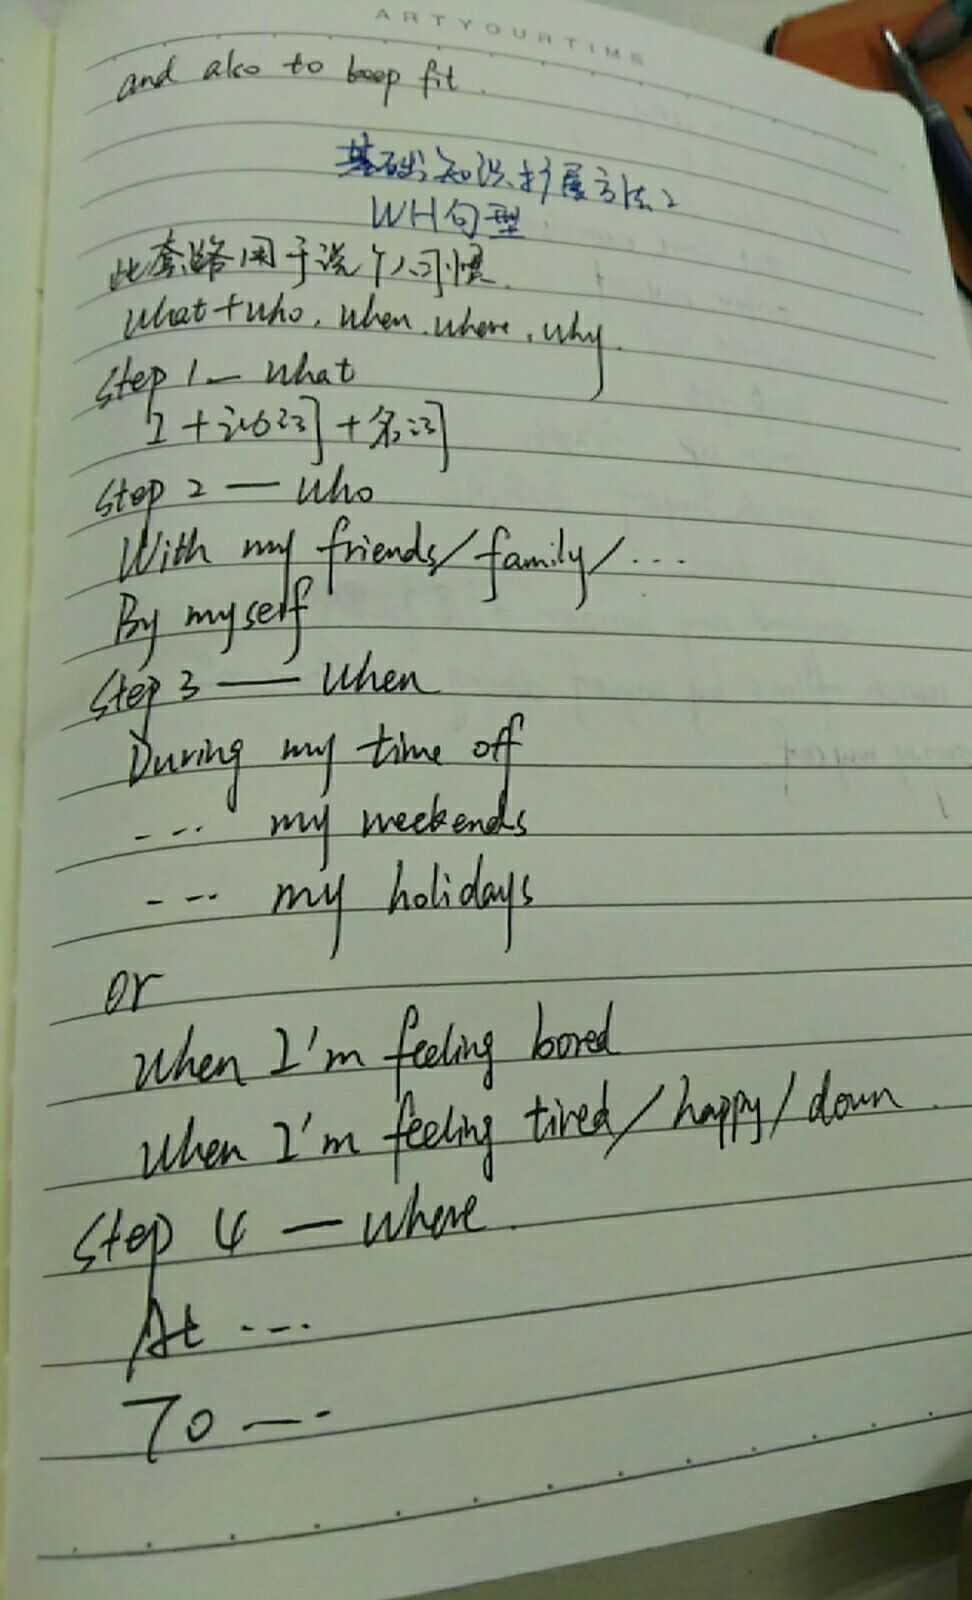 ARTYOURTIME
and also to keep fit.
基础知识扩展方法2
WH句型
此套路用于说个人习惯.
what+who, when, where, why.
Step 1 — what
I + 动词 + 名词
Step 2 — who
With my friends/family/...
By myself
Step 3 — when
During my time off
--- my weekends
--- my holidays
or
When I'm feeling bored
When I'm feeling tired/happy/down.
Step 4 — where.
At ---
To ---